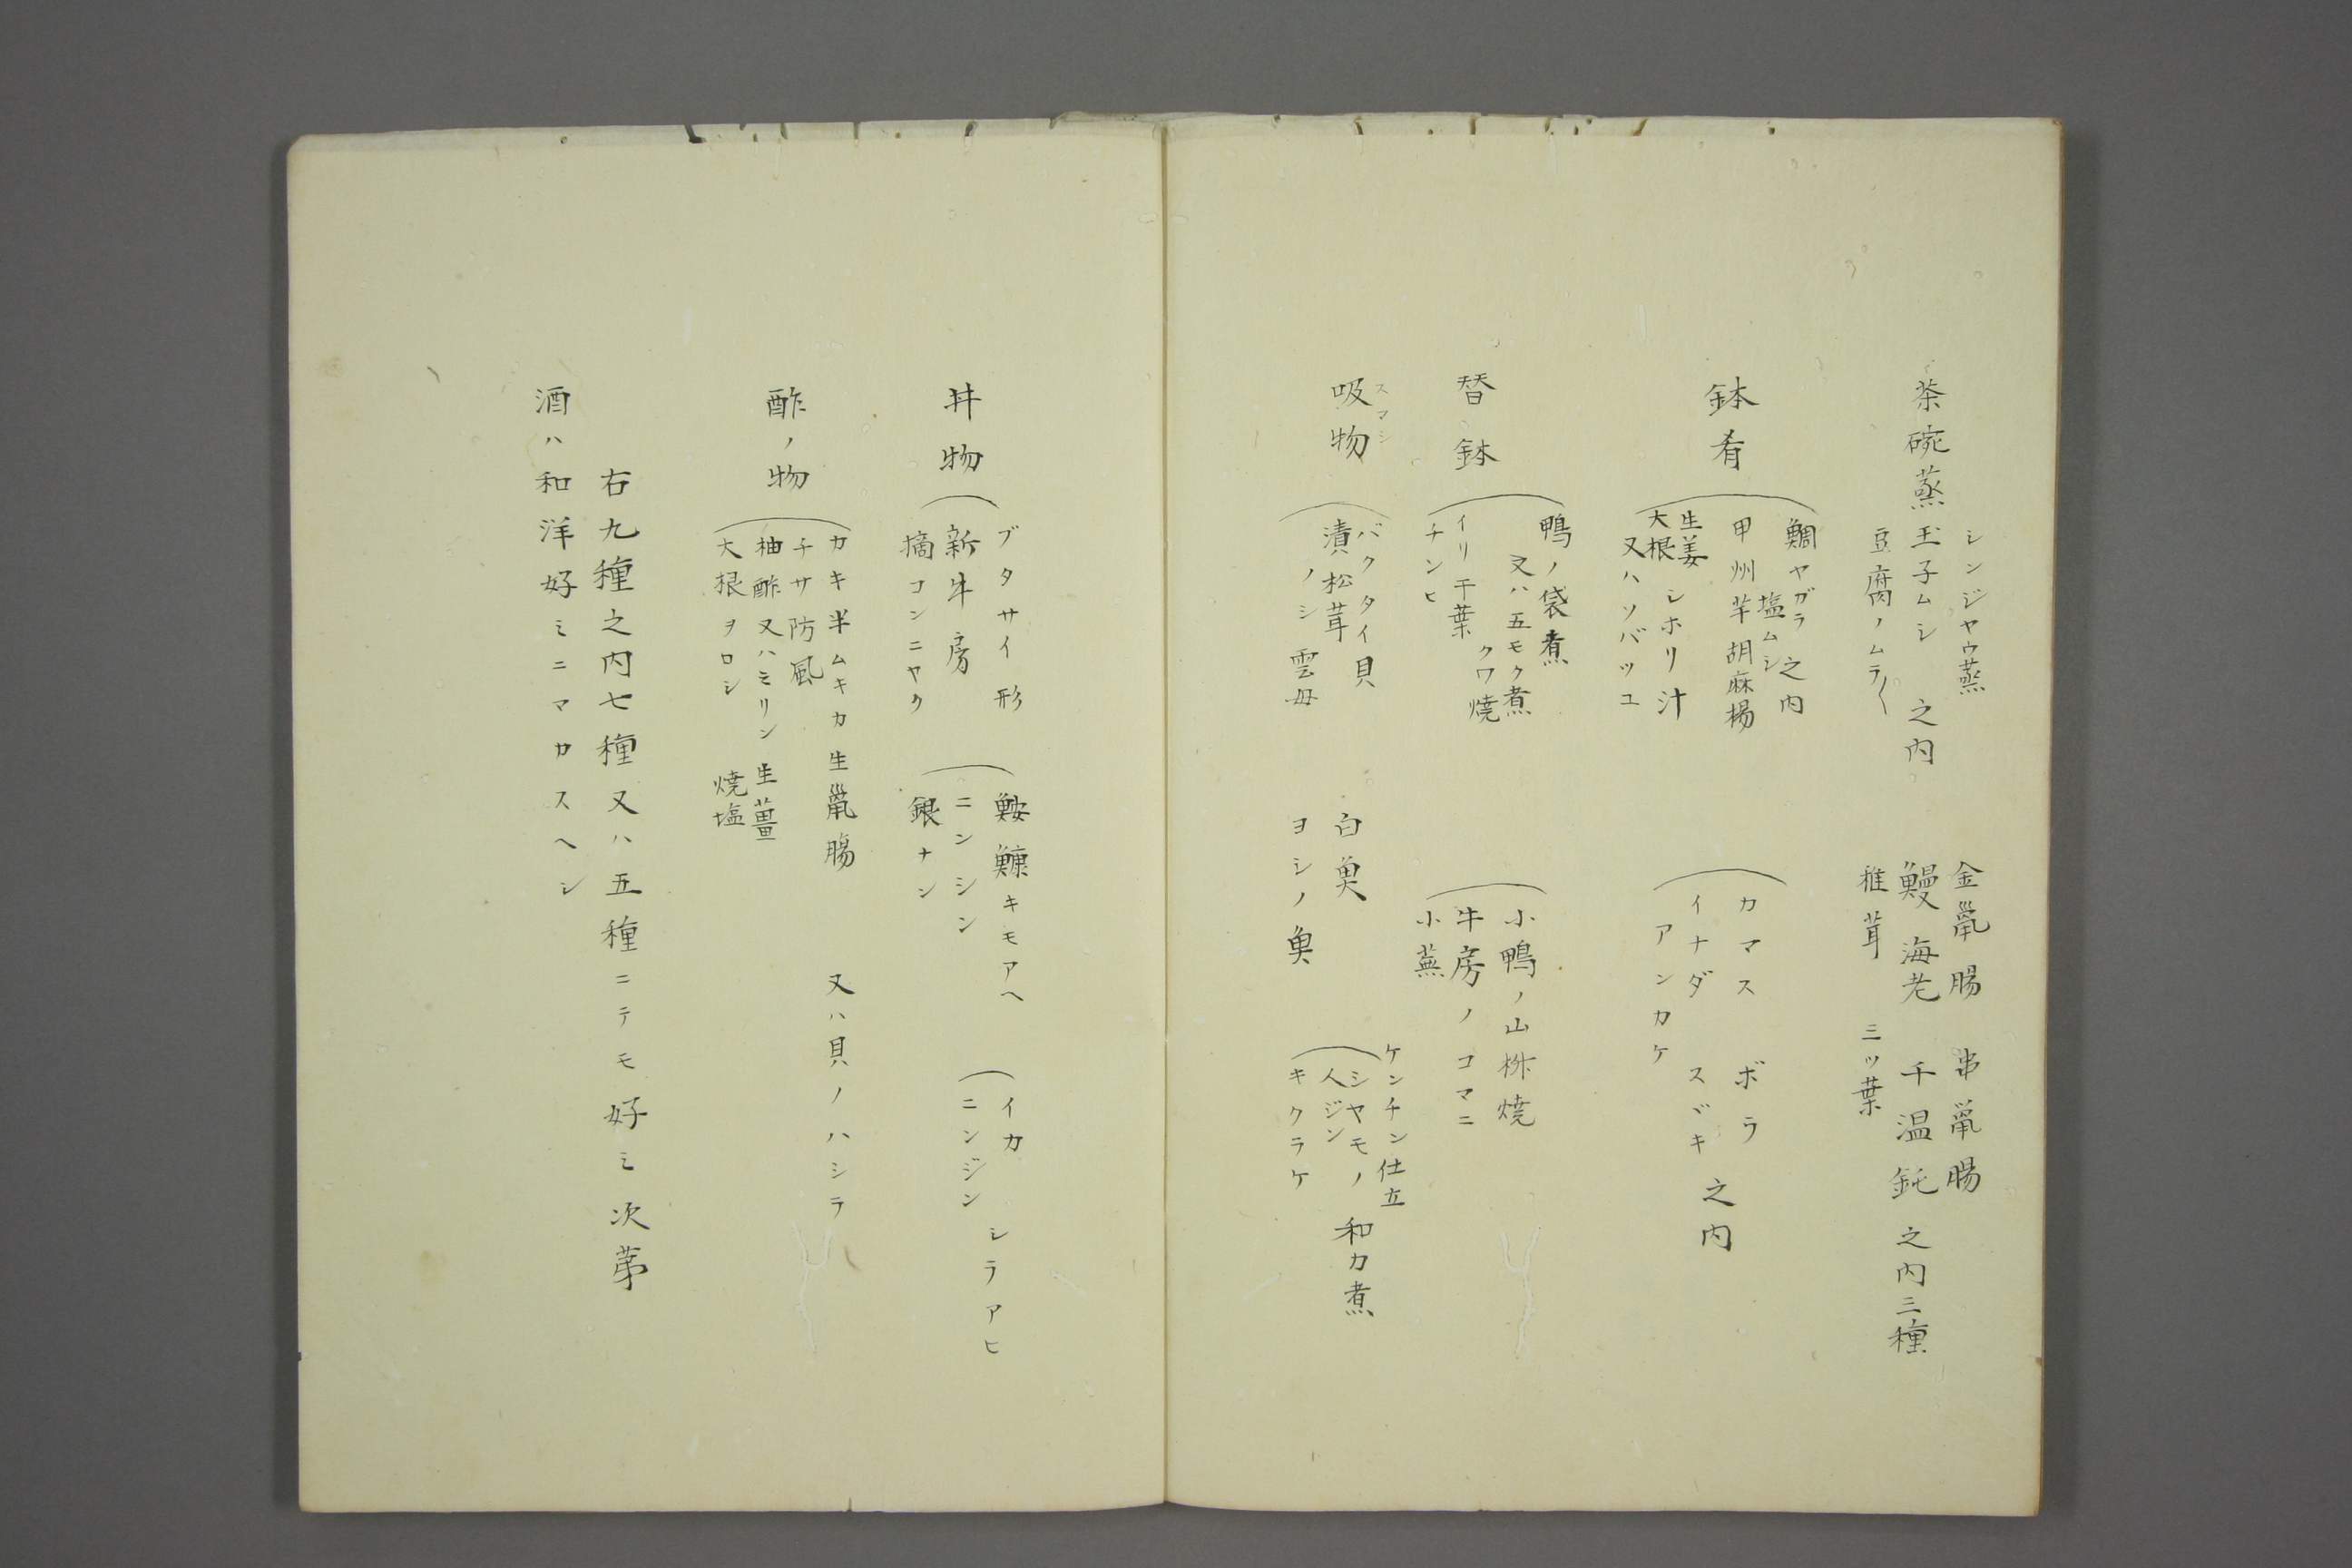 茶碗蒸
シンジヤウ蒸
玉子ムシ 之内
豆腐ノムラ〱
金𩺊腸 串𩺊腸
鰻 海老 干温飩 之内三種
椎茸 三ツ葉
鉢肴
鯛ヤガラ 之内
塩ムシ
甲州芋胡麻揚
生姜
大根
シホリ汁
又ハソバツユ
カマス ボラ
イナダ スヾキ 之内
アンカケ
替鉢
鴨ノ袋煮
又ハ五モク煮
クワ焼
イリ干葉
チンヒ
小鴨ノ山椒焼
牛房ノコマニ
小蕪
スマシ
吸物
バクタイ貝
漬松茸
ノシ 雲母
白魚
ヨシノ魚
ケンチン仕立
シヤモノ 和カ煮
人ジン
キクラケ
丼物
ブタサイ形
新牛房
摘コンニヤク
鮟鱇キモアヘ
ニンシン
銀ナン
イカ シラアヒ
ニンジン
酢ノ物
カキ半ムキカ生𩺊腸 又ハ貝ノハシラ
チサ防風
柚酢又ハミリン 生薑
大根ヲロシ 焼塩
右九種之内七種又ハ五種ニテモ好ミ次第
酒ハ和洋好ミニマカスヘシ